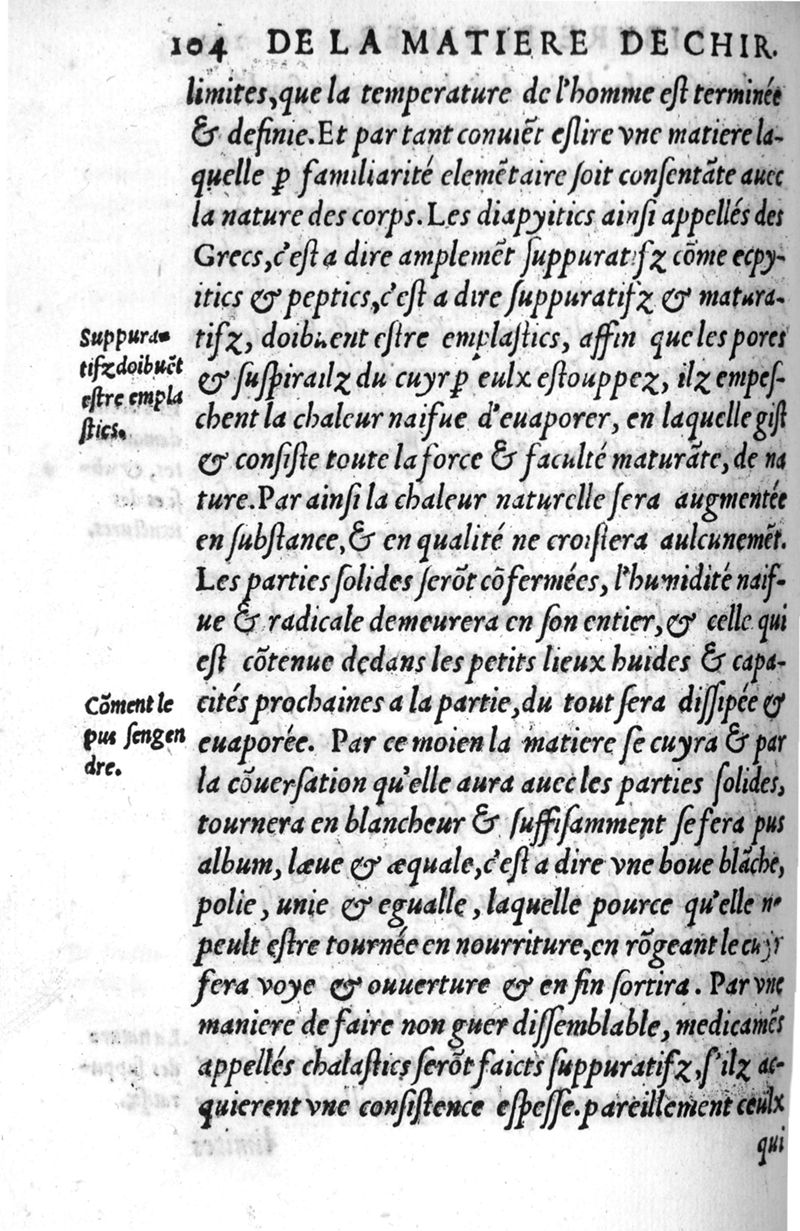 104 DE LA MATIERE DE CHIR.
limites, que la temperature de l'homme eſt terminée
& definie. Et par tant conuiẽt eſlire vne matiere la-
quelle ꝑ familiarité elemẽtaire ſoit conſentãte auec
la nature des corps. Les diapyitics ainſi appellés des
Grecs, c'eſt a dire amplemẽt ſuppuratifz cõme ecpy-
itics & peptics, c'eſt a dire ſuppuratifz & matura-
Suppura-
tifz doibuẽt
eſtre empla
ſtics.
tifz, doibuent eſtre emplaſtics, affin que les pores
& ſuſpirailz du cuyr ꝑ eulx eſtouppez, ilz empeſ-
chent la chaleur naifue d'euaporer, en laquelle giſt
& conſiſte toute la force & faculté maturãte, de na
ture. Par ainſi la chaleur naturelle ſera augmentée
en ſubſtance, & en qualité ne croiſtera aulcunemẽt.
Les parties ſolides ſerõt cõfermées, l'humidité naif-
ue & radicale demeurera en ſon entier, & celle qui
eſt cõtenue dedans les petits lieux huides & capa-
Cõment le
pus ſengen
dre.
cités prochaines a la partie, du tout ſera diſſipée &
euaporée. Par ce moien la matiere ſe cuyra & par
la cõuerſation qu'elle aura auec les parties ſolides,
tournera en blancheur & ſuffiſamment ſe fera pus
album, læue & æquale, c'eſt a dire vne boue blãche,
polie, unie & egualle, laquelle pource qu'elle ne
peult eſtre tournée en nourriture, en rõgeant le cuyr
fera voye & ouuerture & en fin ſortira. Par vne
maniere de faire non guer diſſemblable, medicamẽs
appellés chalaſtics ſerõt faicts ſuppuratifz, ſ'ilz ac-
quierent vne conſiſtence eſpeſſe. pareillement ceulx
qui